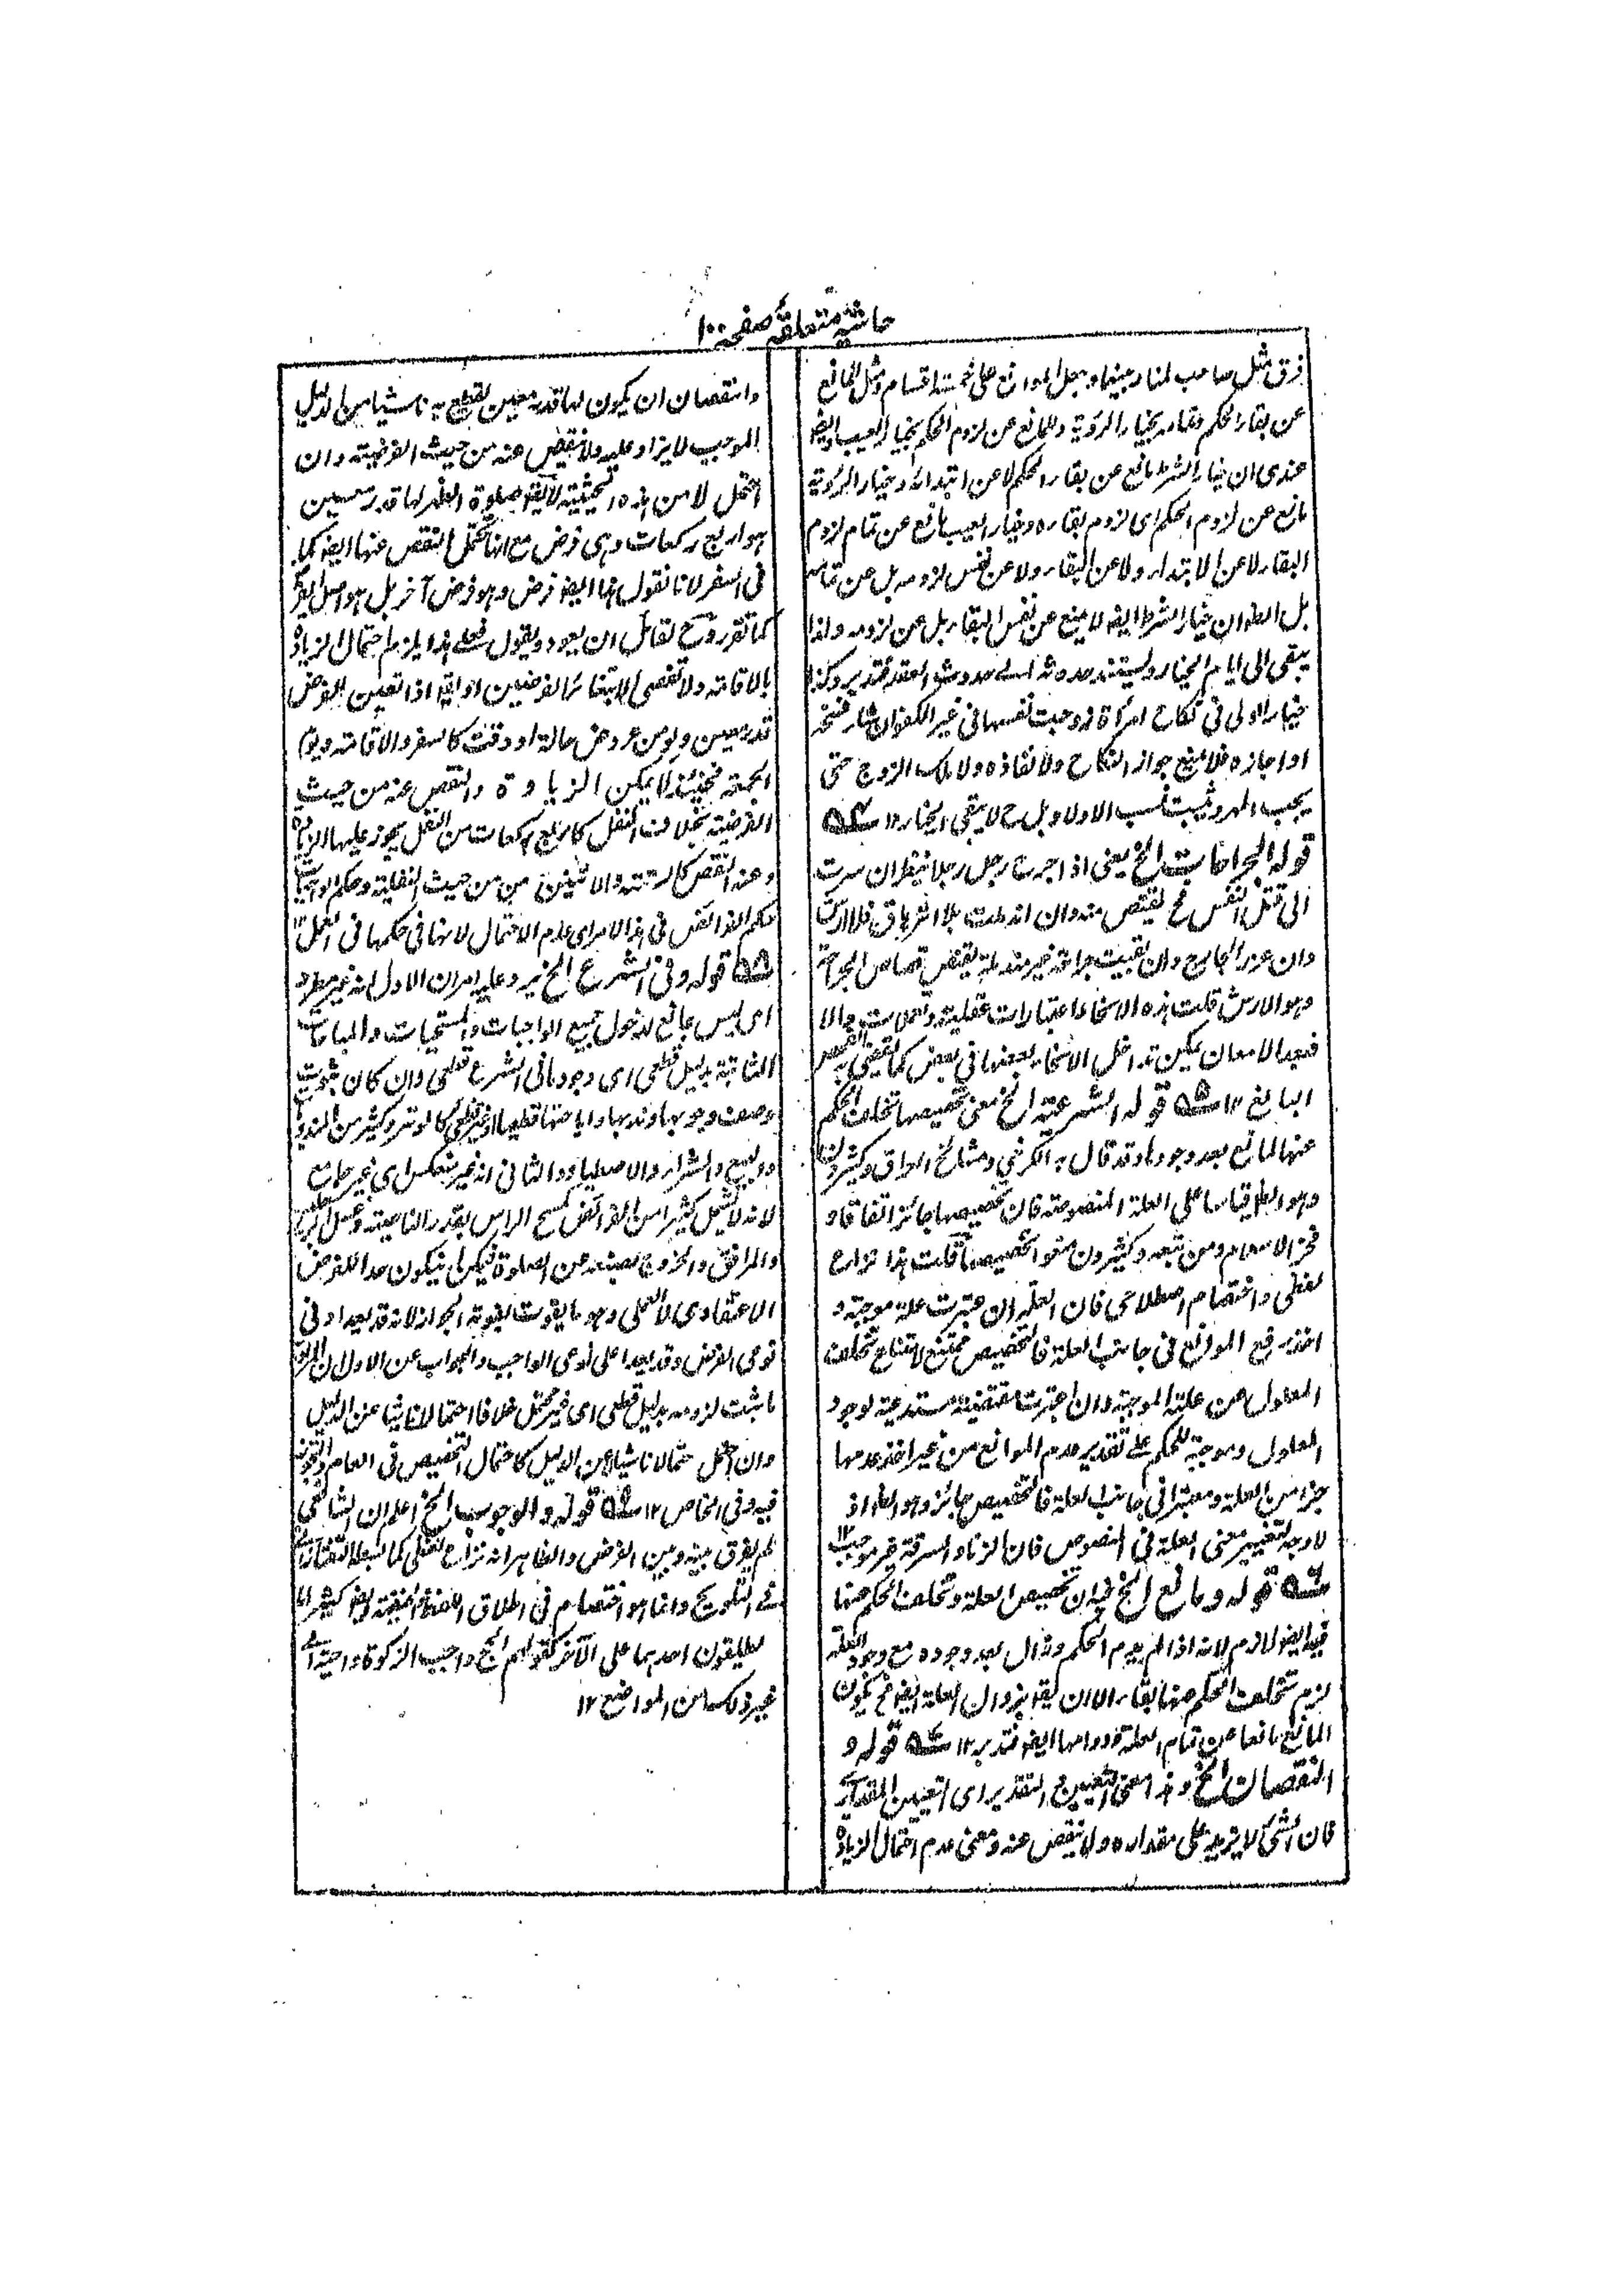 حاشیہ متعلقہ صفحہ ۱۰۰
فرق مثل صاحب المنار بينهما وجعل الموانع على خمسة اقسام ومثل المانع
عن بقاء الحكم وتمامه بخيار الرؤية وللمانع عن لزوم الحكم بخيار العيب وايضا
عندى ان خيار الشرط مانع عن بقاء الحكم لا عن ابتدائه وخيار الرؤية
مانع عن لزوم الحكم اى لزوم بقاءه وخيار العيب مانع عن تمام لزوم
البقاء لا عن الابتداء ولا عن البقاء ولا عن نفس لزومه بل عن تمامه
بل الظ ان خيار الشرط ايضا لا يمنع عن نفس البقاء بل عن لزومه ولذا
يبقى الى ايام الخيار وليستند حدوثه الى حدوث العقد فتدبر وكذا
خيار الولى فى نكاح امرأة زوجت نفسها فى غير الكفو ان شاء فسخه
او اجازه فلا يمنع جواز النكاح ولا نفاذه ولا ملك الزوج حتى
يجب المهر ويثبت نسب الاولاد بل ح لا يبقى الخيار ۱۲
قوله الجراحات الخ يعنى اذا جرح رجل رجلا ينظر ان سرت
الى قتل النفس فح يقتص منه وان اندملت بلا اثر باق فلا ارش
وان عزر الجارح وان بقيت جراحة غير مندملة يقتص قصاص الجراحة
وهو الارش قلت هذه الانحاء اعتبارات عقلية وتعملات والا
فبعد الامعان يمكن تداخل الانحاء بعضها فى بعض كما يقضى به الفهم
البالغ ۱۲ قوله الشرعية الخ معنى تخصيصها تخلف الحكم
عنها لمانع بعد وجودها وقد قال به الكرخى ومشائخ العراق وكثيرون
وهو الظ قياسا على العلة المنصوصة فان تخصيصها جائز اتفاقا و
فخر الاسلام ومن تبعه وكثيرون منعوا تخصيصها قلت هذا نزاع
لفظى واختصام اصطلاحى فان العلة ان اعتبرت علة موجبة و
اخذ رفع الموانع فى جانب العلة فالتخصيص ممتنع لامتناع تخلف
المعلول عن علته الموجبة وان اعتبرت مقتضية مستدعية لوجود
المعلول وموجبة للحكم على تقدير عدم الموانع من غير اخذ عدمها
جزء من العلة ومعتبرا فى جانب العلة فالتخصيص جائز وهو الظ اذ
لا وجه لتغيير معنى العلة فى المنصوص فان الزنا والسرقة غير موجب ۱۲
قوله ومانع الخ فيه ان تخصيص العلة وتخلف الحكم عنها
فيه ايضا لازم لانه اذا لم يدم الحكم وزال بعد وجوده مع وجود العلة
لزم تخلف الحكم عنها بقاء الا ان يقال بزوال العلة ايضا فح يكون
المانع مانعا عن تمام العلة ودوامها ايضا فتدبر ۱۲ قوله و
النقصان الخ وهذا معنى التعيين والتقدير اى التعيين المقدارى
فان الشئ لا يزيد على مقداره ولا ينقص عنه ومعنى عدم احتمال الزيادة
والنقصان ان يكون لها قدر معين لقطع به ناشيا من الدليل
الموجب لا يزاد عليه ولا ينقص عنه من حيث الفرضية وان
احتمل لا من هذه الحيثية لا يقال صلوة الظهر لها قدر معين
هو اربع ركعات وهى فرض مع انها تحتمل النقص عنها ايضا كما
فى السفر لانا نقول هذا ايضا فرض وهو فرض آخر بل هو اصل
كما تقرر وح لقائل ان يعود ويقول فعلى هذا يلزم احتمال الزيادة
بالاقامة ولا تفصى الا بتغائر الفرضين او اذا تعين الفرض
قدر معين ولو من عروض حالة او وقت كالسفر والاقامة ويوم
الجمعة فحينئذ لا يمكن الزيادة والنقص عنه من حيث
الفرضية بخلاف النفل كاربع ركعات من النفل يجوز عليها الزيادة
وعنه النقص كالستة والاثنين من حيث النفلية وحكم الواجبات
حكم الفرائض فى هذا الامر اى عدم الاحتمال لانها فى حكمها فى العمل ۱۲
قوله وفى الشرع الخ يرد عليه امران الاول انه غير مطرد
اى ليس بمانع لدخول جميع الواجبات والمستحبات والمباحات
الثابتة بدليل قطعى اى وجودها فى الشرع قطعى وان كان ثبوت
وصف وجوبها وندبها واباحتها قطعيا او غير قطعى كالوتر وكثير من المندوبات
والبيع والشراء والاصطياد والثانى انه غير منعكس اى غير جامع
لانه لا يشمل كثيرا من الفرائض كمسح الراس بقدر الناصية وغسل
والمرافق والخروج بصنعه عن الصلوة فيكون حدا للفرض
الاعتقادى لا العملى وهو ما يفوت بفوته الجواز لانه قد يعد ادنى
نوعى الفرض وقد يعد اعلى نوعى الواجب والجواب عن الاول ان المراد
ما ثبت لزومه بدليل قطعى اى غير محتمل خلافا احتمالا ناشيا عن الدليل
وان احتمل احتمالا ناشيا لا عن الدليل كاحتمال التخصيص فى العام والتجوز
فيه وفى الخاص ۱۲ قوله والوجوب الخ اعلم ان الشافعى
لم يفرق بينه وبين الفرض والظاهر انه نزاع لفظى كما بسطه التفتازانى
فى التلويح وانما هو اختصام فى اطلاق اللفظ والحنفية ايضا كثيرا ما
يطلقون احدهما على الآخر كقولهم الحج واجب الزكوة واجبة الى
غير ذلك من المواضع ۱۲